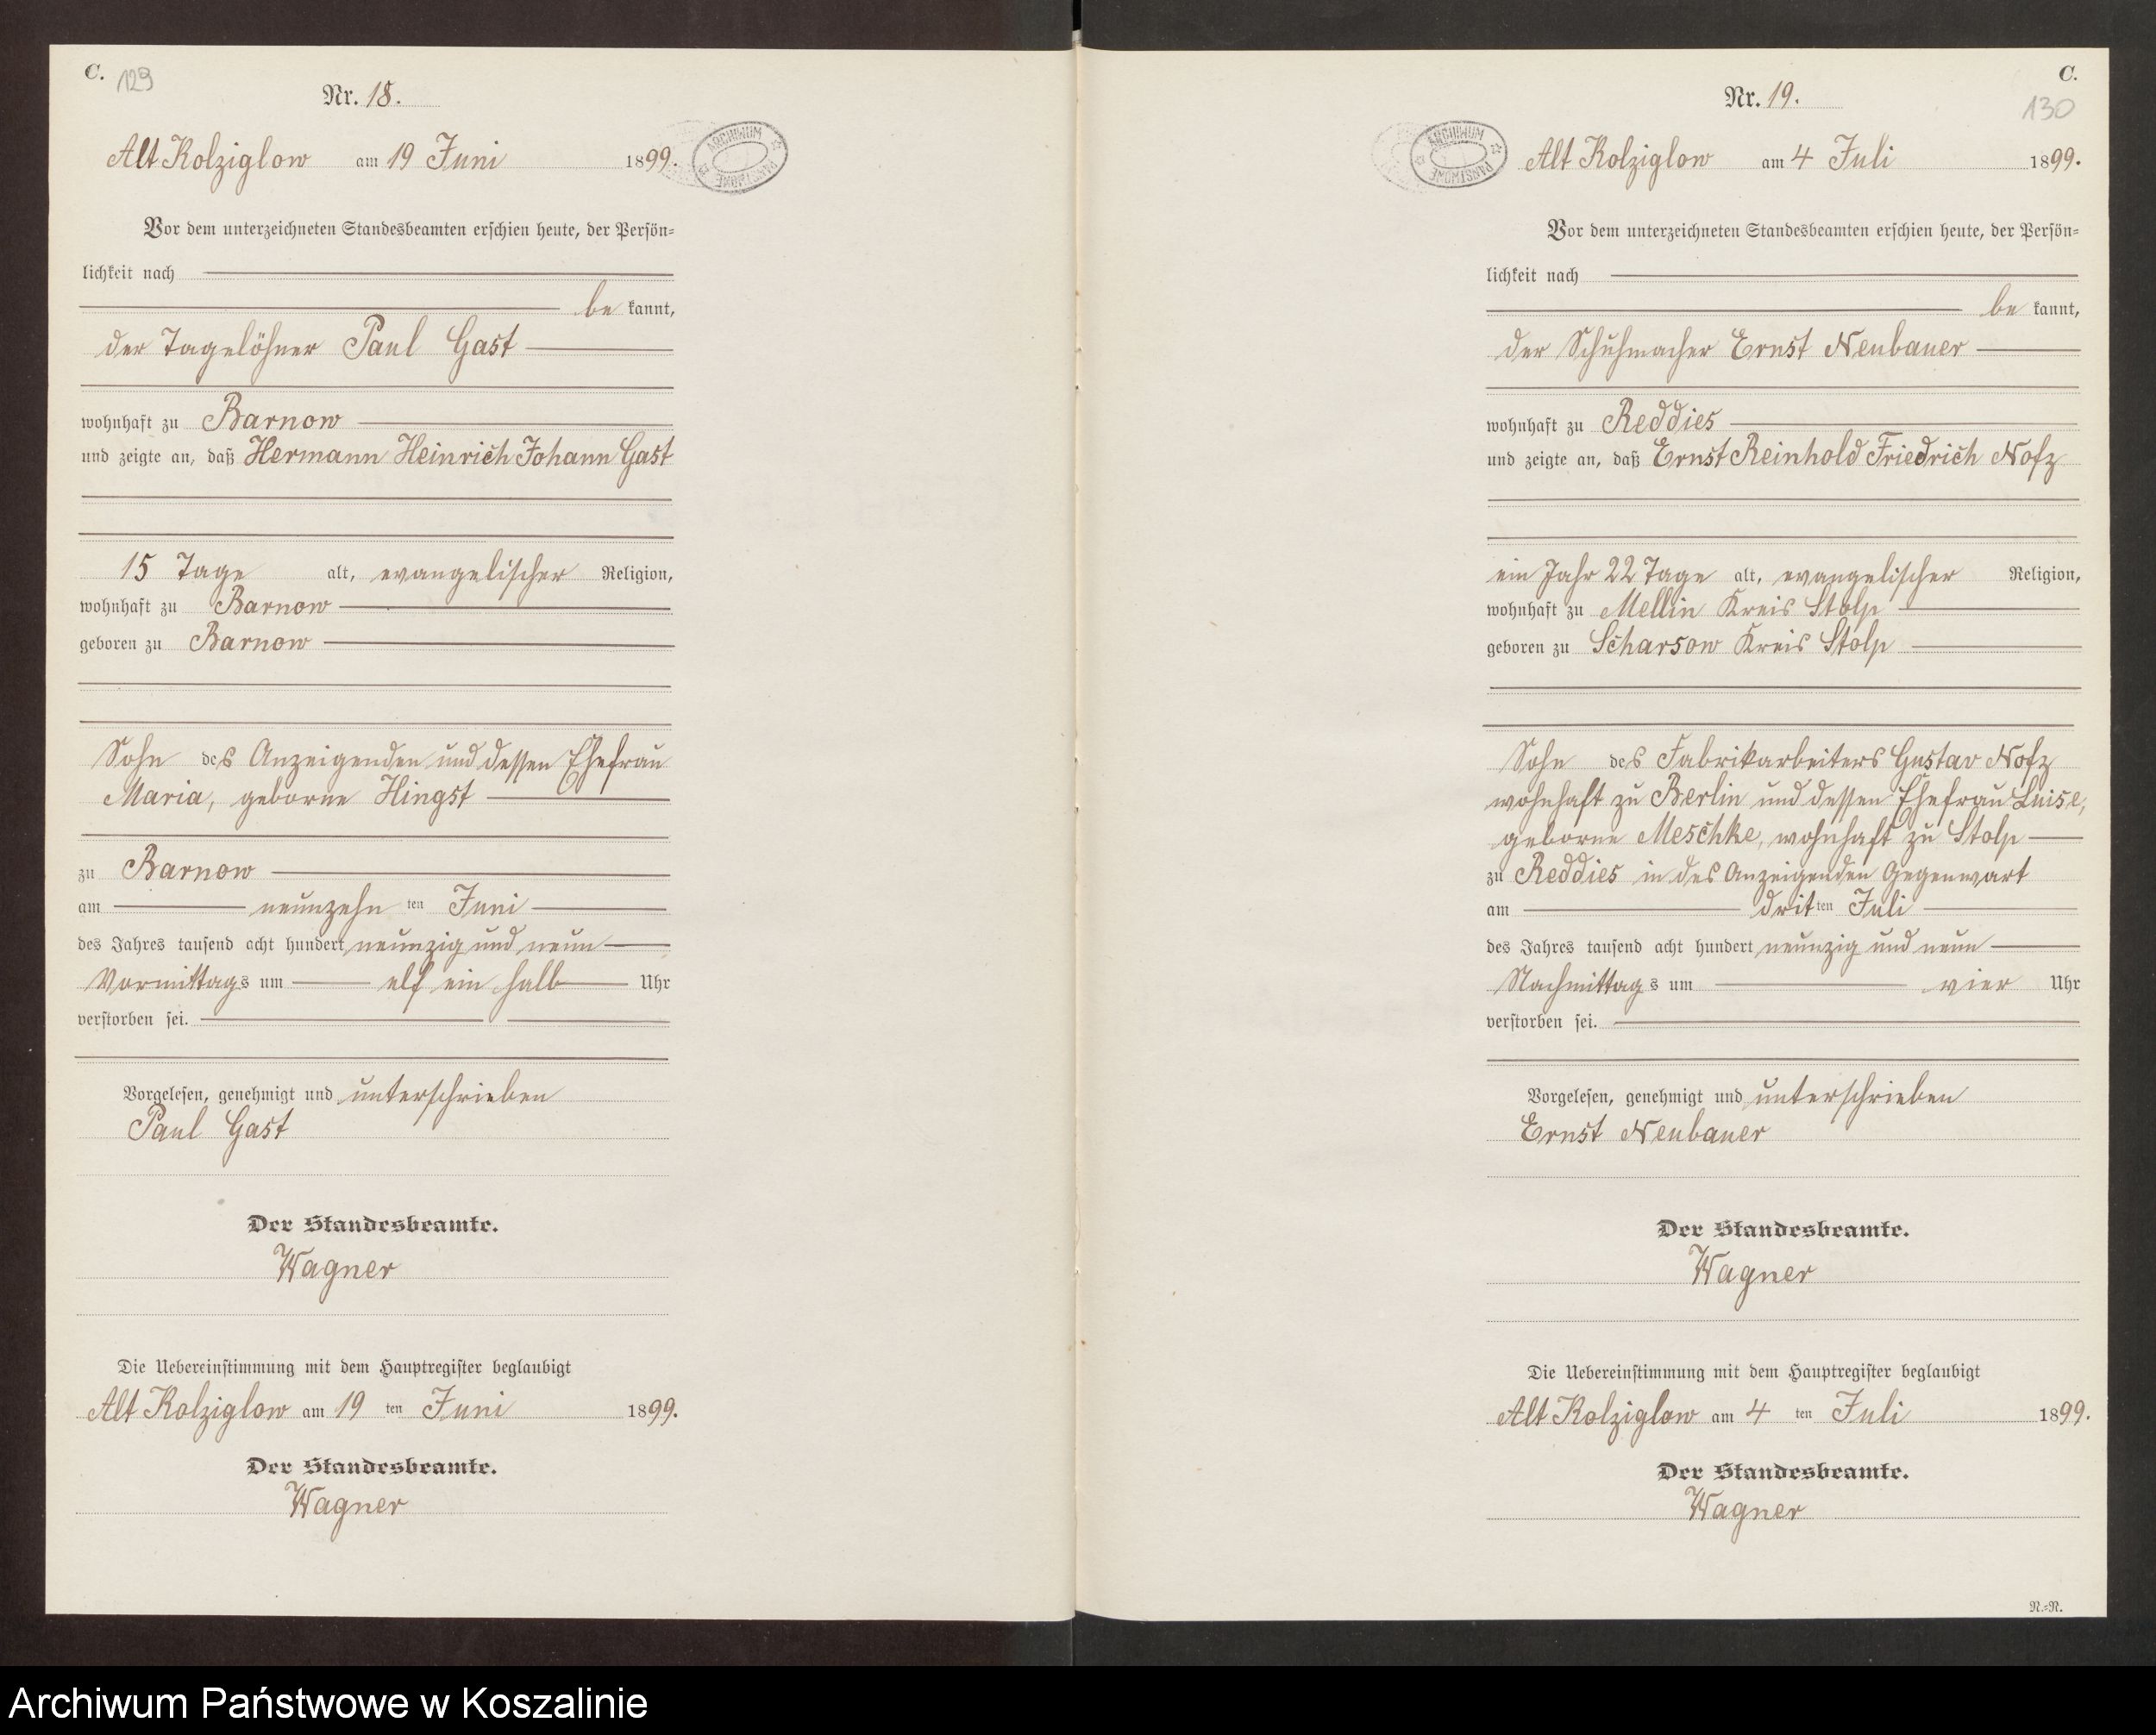 C. 129
Nr. 18.
Alt Kolziglow am 19 Juni 1899.
ARCHIWUM PAŃSTWOWE
Vor dem unterzeichneten Standesbeamten erschien heute, der Persön-
lichkeit nach
be kannt,
der Tagelöhner Paul Gast
wohnhaft zu Barnow
und zeigte an, daß Hermann Heinrich Johann Gast
15 Tage alt, evangelischer Religion,
wohnhaft zu Barnow
geboren zu Barnow
Sohn des Anzeigenden und dessen Ehefrau
Maria, geborne Hingst
zu Barnow
am neunzehn ten Juni
des Jahres tausend acht hundert neunzig und neun
Vormittags um elf ein halb Uhr
verstorben sei.
Vorgelesen, genehmigt und unterschrieben
Paul Gast
Der Standesbeamte.
Wagner
Die Uebereinstimmung mit dem Hauptregister beglaubigt
Alt Kolziglow am 19 ten Juni 1899.
Der Standesbeamte.
Wagner
C.
130
Nr. 19.
ARCHIWUM PAŃSTWOWE
Alt Kolziglow am 4 Juli 1899.
Vor dem unterzeichneten Standesbeamten erschien heute, der Persön-
lichkeit nach
be kannt,
der Schuhmacher Ernst Neubauer
wohnhaft zu Reddies
und zeigte an, daß Ernst Reinhold Friedrich Nofz
ein Jahr 22 Tage alt, evangelischer Religion,
wohnhaft zu Mellin Kreis Stolp
geboren zu Scharsow Kreis Stolp
Sohn des Fabrikarbeiters Gustav Nofz
wohnhaft zu Berlin und dessen Ehefrau Luise,
geborne Meschke, wohnhaft zu Stolp
zu Reddies in des Anzeigenden Gegenwart
am dritten Juli
des Jahres tausend acht hundert neunzig und neun
Nachmittags um vier Uhr
verstorben sei.
Vorgelesen, genehmigt und unterschrieben
Ernst Neubauer
Der Standesbeamte.
Wagner
Die Uebereinstimmung mit dem Hauptregister beglaubigt
Alt Kolziglow am 4 ten Juli 1899.
Der Standesbeamte.
Wagner
N.=N.
Archiwum Państwowe w Koszalinie